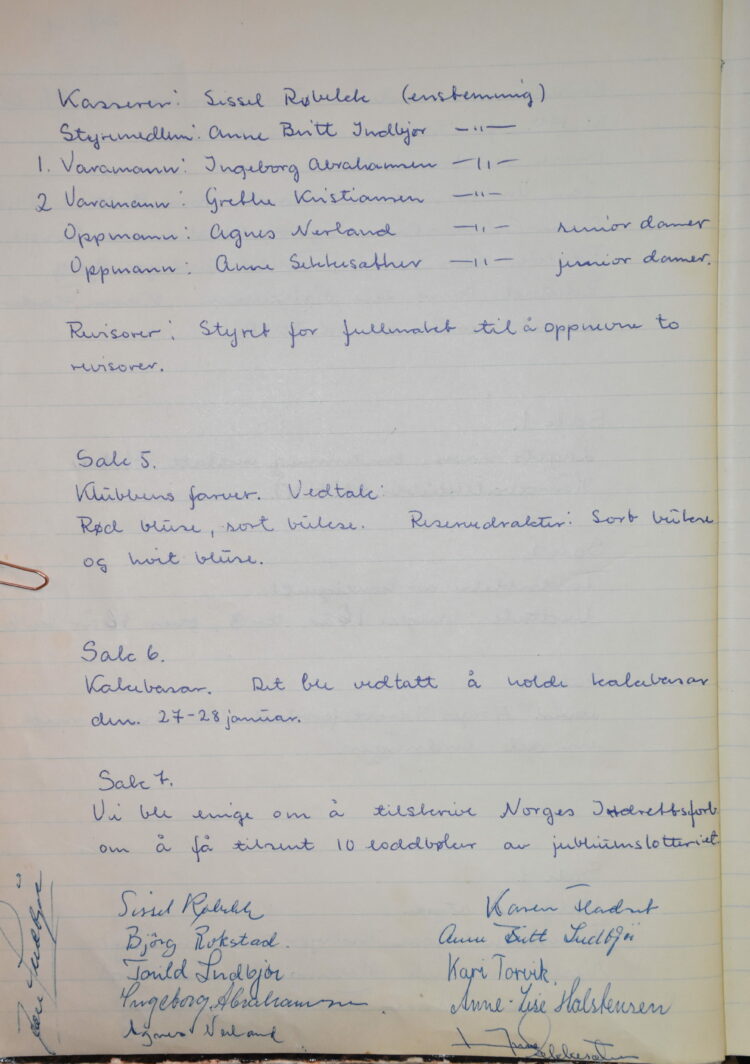 Kasserer: Sissel Røbekk (enstemmig)
Styremedlem: Anne Britt Indbjør —"—
1. Varamann: Ingeborg Abrahamsen —"—
2 Varamann: Grethe Kristiansen —"—
Oppmann: Agnes Nerland —"— senior damer
Oppmann: Anne Sekkesæther —"— junior damer.
Revisorer: Styret for fullmatet til å oppnevne to
revisorer.
Sak 5.
Klubbens farver. Vedtak:
Rød bluse, sort bukse. Reservedrakter: Sort bukse
og hvit bluse.
Sak 6.
Kakebasar. Det ble vedtatt å holde kakebasar
den. 27-28 januar.
Sak 7.
Vi ble enige om å tilskrive Norges Iddrettsforb
om å få tilsent 10 loddbøker av jubileumslotteriet.
Sissel Røbekk
Karen
Bjørg Rokstad.
Anne Britt Indbjør
Torild Indbjør
Kari Torvik.
Ingeborg Abrahamsen
Anne-Lise Halstensen
Agnes Nerland